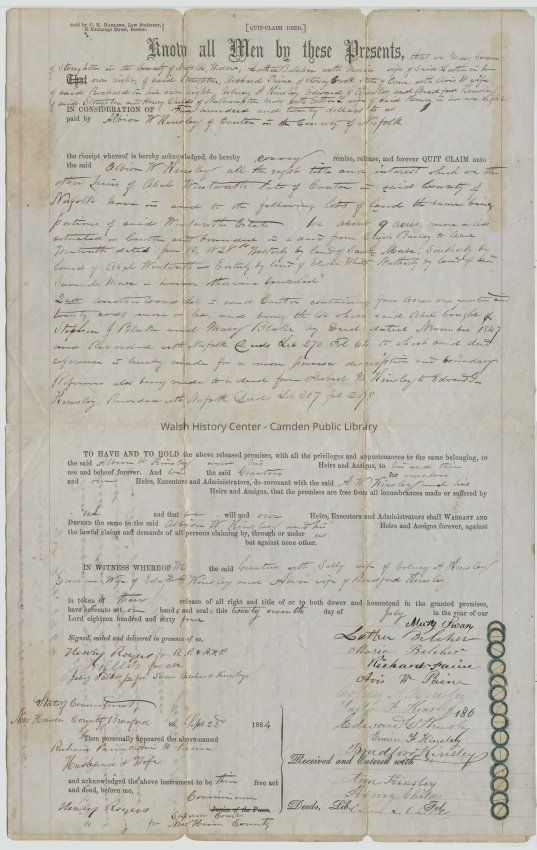 Sold by C. K. DARLING, Law Stationer,
Exchange Street, Boston.
[QUIT-CLAIM DEED.]
Know all Men by these Presents, that we Mary Swan
of Stoughton in the County of Norfolk, Luther Belcher with Maria wife of said Luther in her
That own right, of said Stoughton, Richard Paine of Stony Creek State of Conn. with Avis W wife
of said Richard in her own right, Edward G Kinsley and Bradford Kinsley
of said Stoughton and Henry Childs of Mass with wife of said Henry in her own right
IN CONSIDERATION OF Five hundred and twenty dollars to us
paid by Albion W Kinsley of Canton in the County of Norfolk
the receipt whereof is hereby acknowledged, do hereby convey remise, release, and forever QUIT CLAIM unto
the said Albion W Kinsley all the right title and interest which we the
other heirs of Abel Wentworth late of Canton in said County of
Norfolk have in and to the following lots of land the same being
portions of said Wentworth Estate 1st about 9 acres, more or less
situated in Canton and bounded in a deed from Elijah Bailey to Abel
Wentworth dated 1828 Westerly by land of Saml Mase, Southerly by
land of Abel Wentworth Easterly by land of White Northerly by land of
Samuel Mase or however otherwise bounded
2nd another wood lot in said Canton containing four acres one quarter and
twenty rods more or less, and being the lot which said Abel bought of
Stephen J Blake and Mary Blake by Deed dated November 1847
and Recorded with Norfolk Deeds Lib 270 Fol 62 to which said deed
reference is hereby made for a more precise description and boundary
Reference also being made to a deed from M Kinsley to Edward G
Kinsley Recorded with Norfolk Deeds Lib 307 fol 298
Walsh History Center - Camden Public Library
TO HAVE AND TO HOLD the above released premises, with all the privileges and appurtenances to the same belonging, to
the said Albion W Kinsley and his Heirs and Assigns, to his and their
use and behoof forever. And we the said Grantors for ourselves
and our Heirs, Executors and Administrators, do covenant with the said A W Kinsley and his
Heirs and Assigns, that the premises are free from all incumbrances made or suffered by
us and that we will and our Heirs, Executors and Administrators shall WARRANT AND
DEFEND the same to the said Albion W Kinsley and his Heirs and Assigns forever, against
the lawful claims and demands of all persons claiming by, through or under us
but against none other.
IN WITNESS WHEREOF We the said Grantors with Sally wife of F Kinsley
wife of Edwd G Kinsley and Avon wife of Bradford Kinsley
in token of their release of all right and title of or to both dower and homestead in the granted premises,
have hereunto set our hands and seals this twenty seventh day of July in the year of our
Lord eighteen hundred and sixty four
Mary Swan
Luther Belcher
Signed, sealed and delivered in presence of us,
Maria Belcher
Henry Rogers for R. P. & A. W. P.
Richard Paine
for all
Avis W Paine
for Swan Belcher & Kinsleys
F Kinsley 186
State of Connecticut
Edward G Kinsley
New Haven County Branford ss. Sept 23d 1864
F Kinsley
Bradford Kinsley
Then personally appeared the above-named
Received and Entered with
Richard Paine & Avis W Paine
Husband & Wife
Avon Kinsley
and acknowledged the above instrument to be their free act
Henry Childs
and deed, before me,
Deeds, Lib. Fol.
Justice of the Peace.
Henry Rogers
Superior Court
for New Haven County